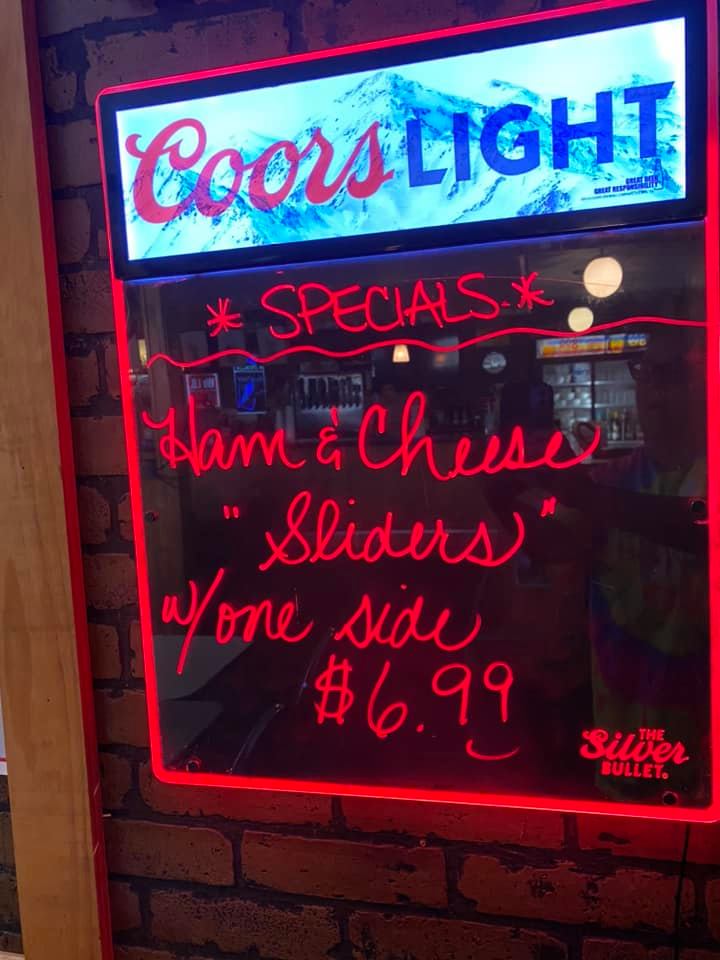 Coors LIGHT
GREAT BEER
GREAT RESPONSIBILITY
* SPECIALS *
Ham & Cheese
"Sliders"
w/one side
$6.99
THE
Silver
BULLET.